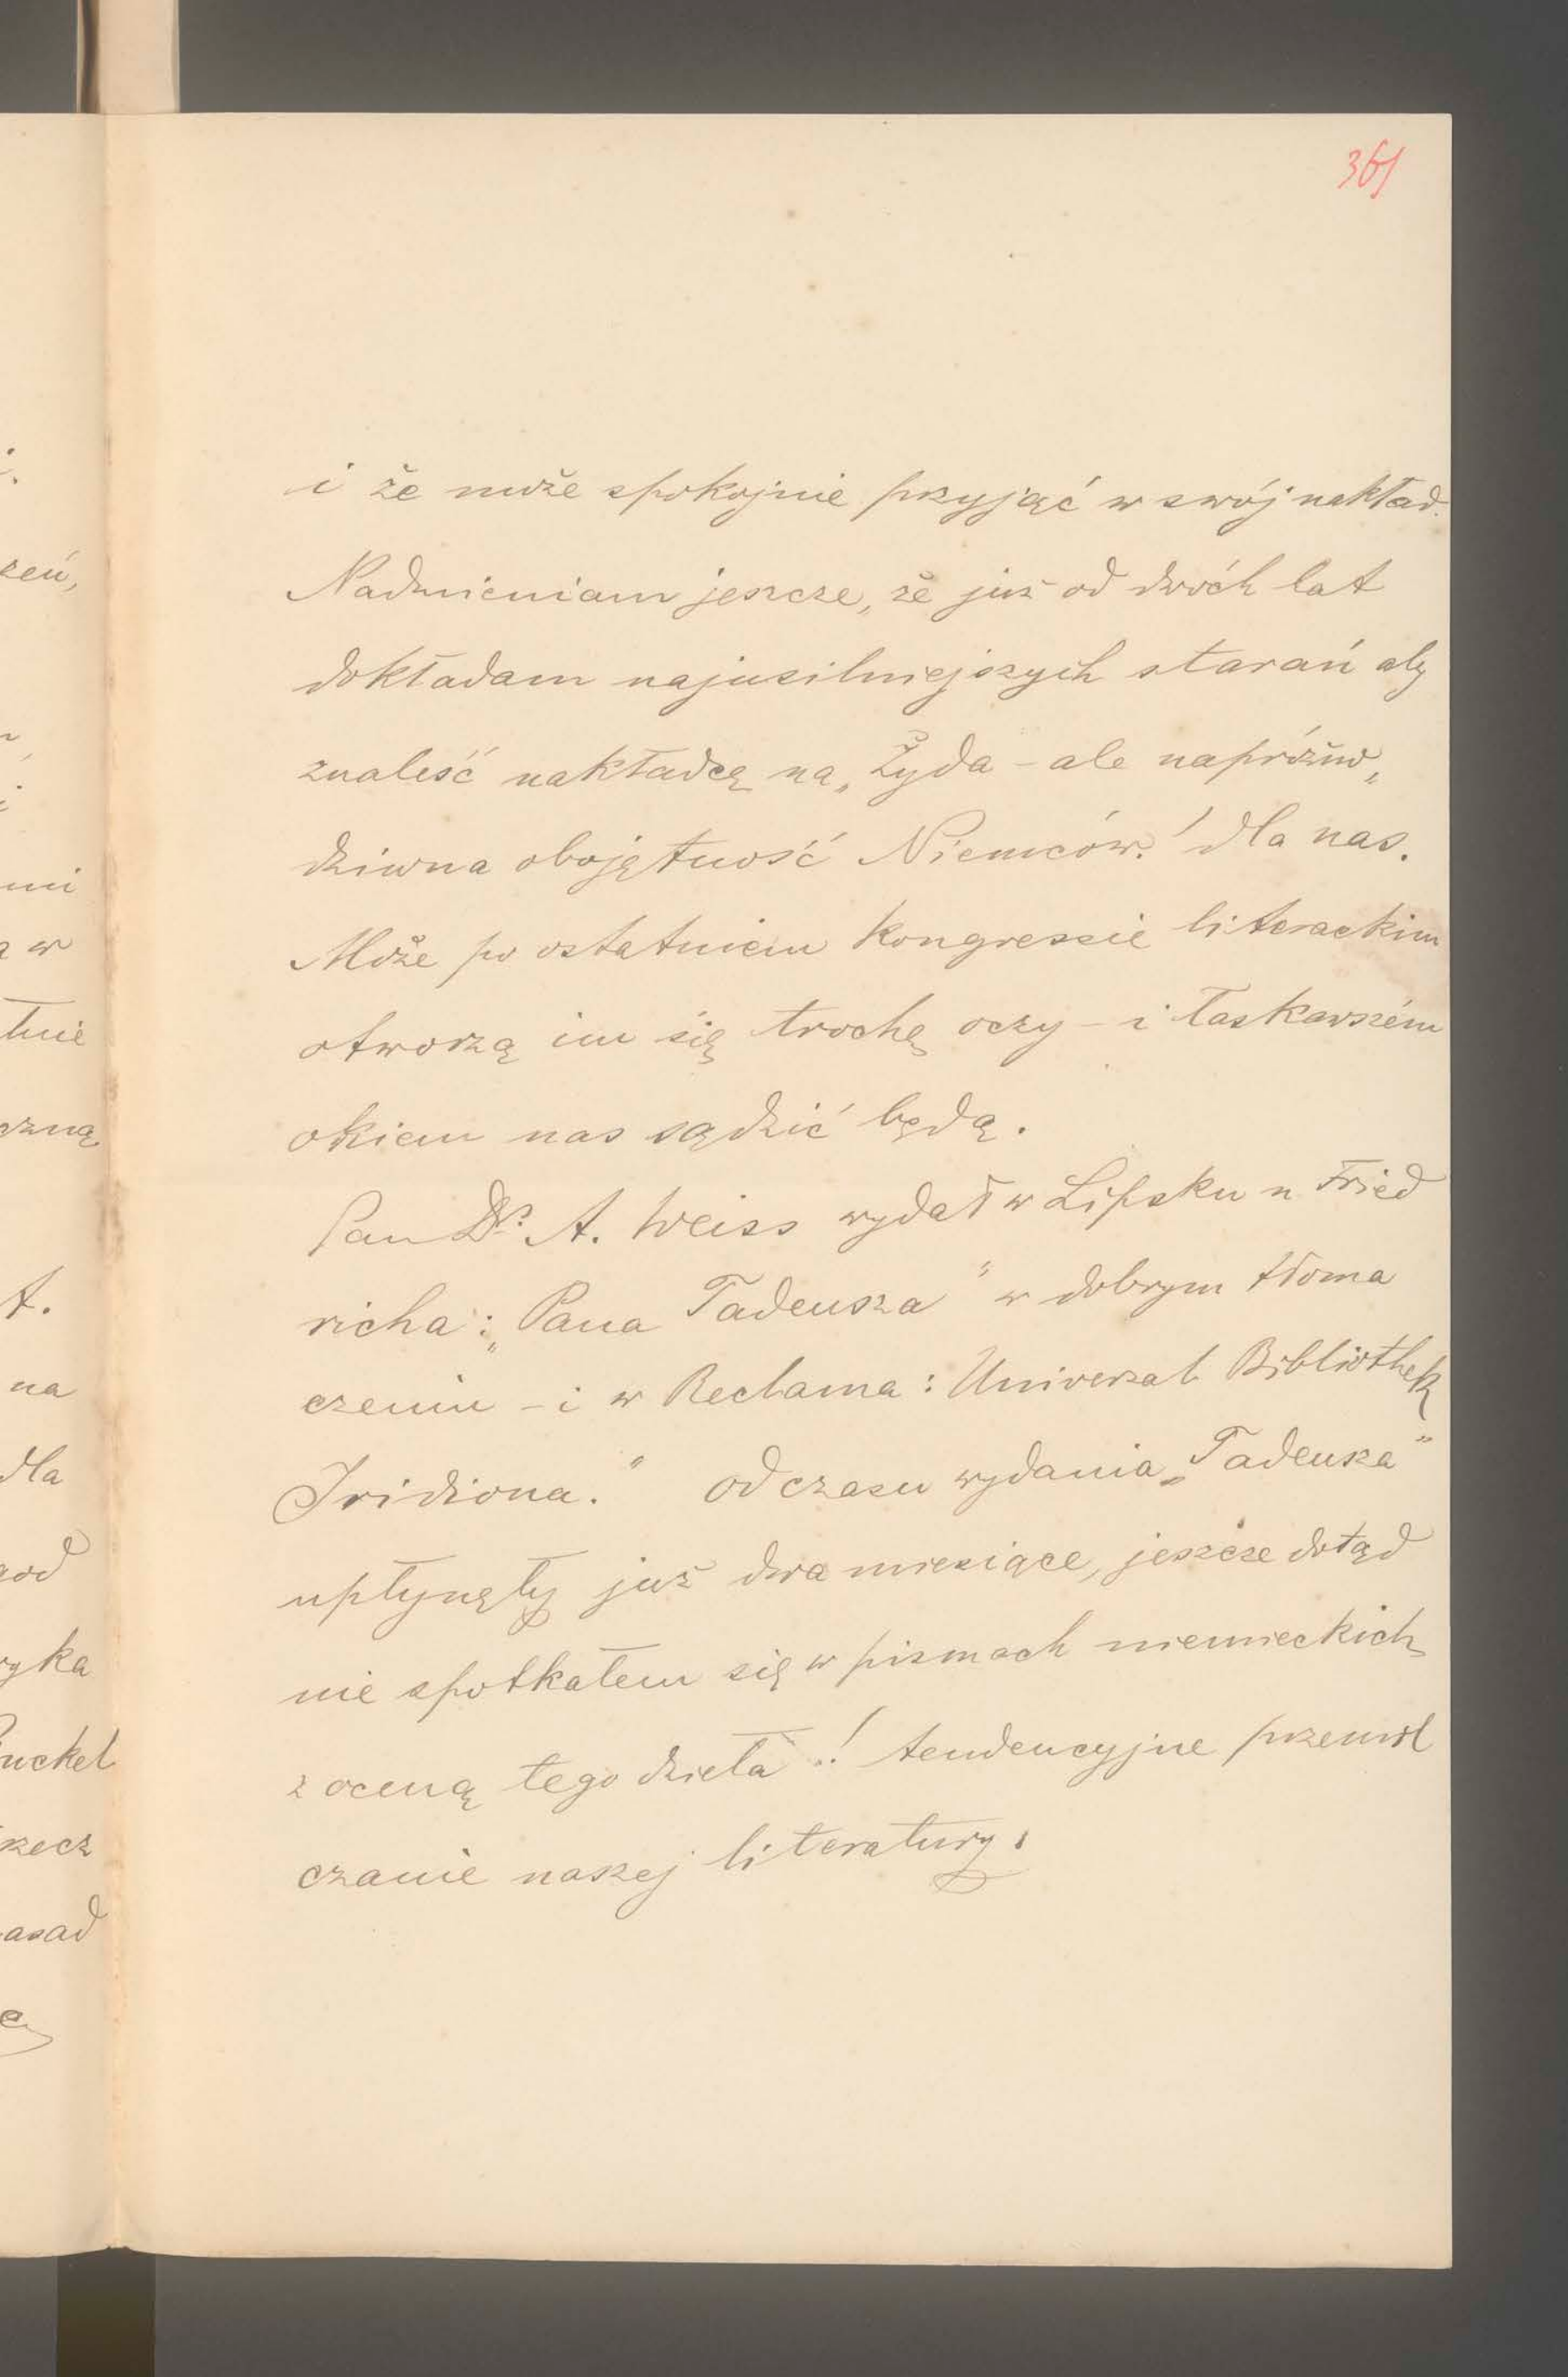 361
i że może spokojnie przyjąć w swój nakład.
Nadmieniam jeszcze, że już od dwóch lat
dokładam najusilniejszych starań aby
znaleść nakładcę na „Żyda – ale napróżno„
dziwna obojętność Niemców! dla nas.
Może po ostatniem Kongressie literackim
otworzą im się trochę oczy – i łaskawszém
okiem nas sądzić będą.
Pan Dr. A. Weiss wydał w Lipsku u Fried
richa: „Pana Tadeusza" w dobrym tłoma
czeniu – i w Reclama: Universal Bibliothek
Iridiona." Od czasu wydania „Tadeusza"
upłynęły już dwa miesiące, jeszcze dotąd
nie spotkałem się w pismach niemieckich
z oceną tego dzieła..! tendencyjne przemil
czanie naszej literatury.
zeń,
mi
a w
tnie
czną
A.
na
dla
god
ryka
uckel
rzecz
asad